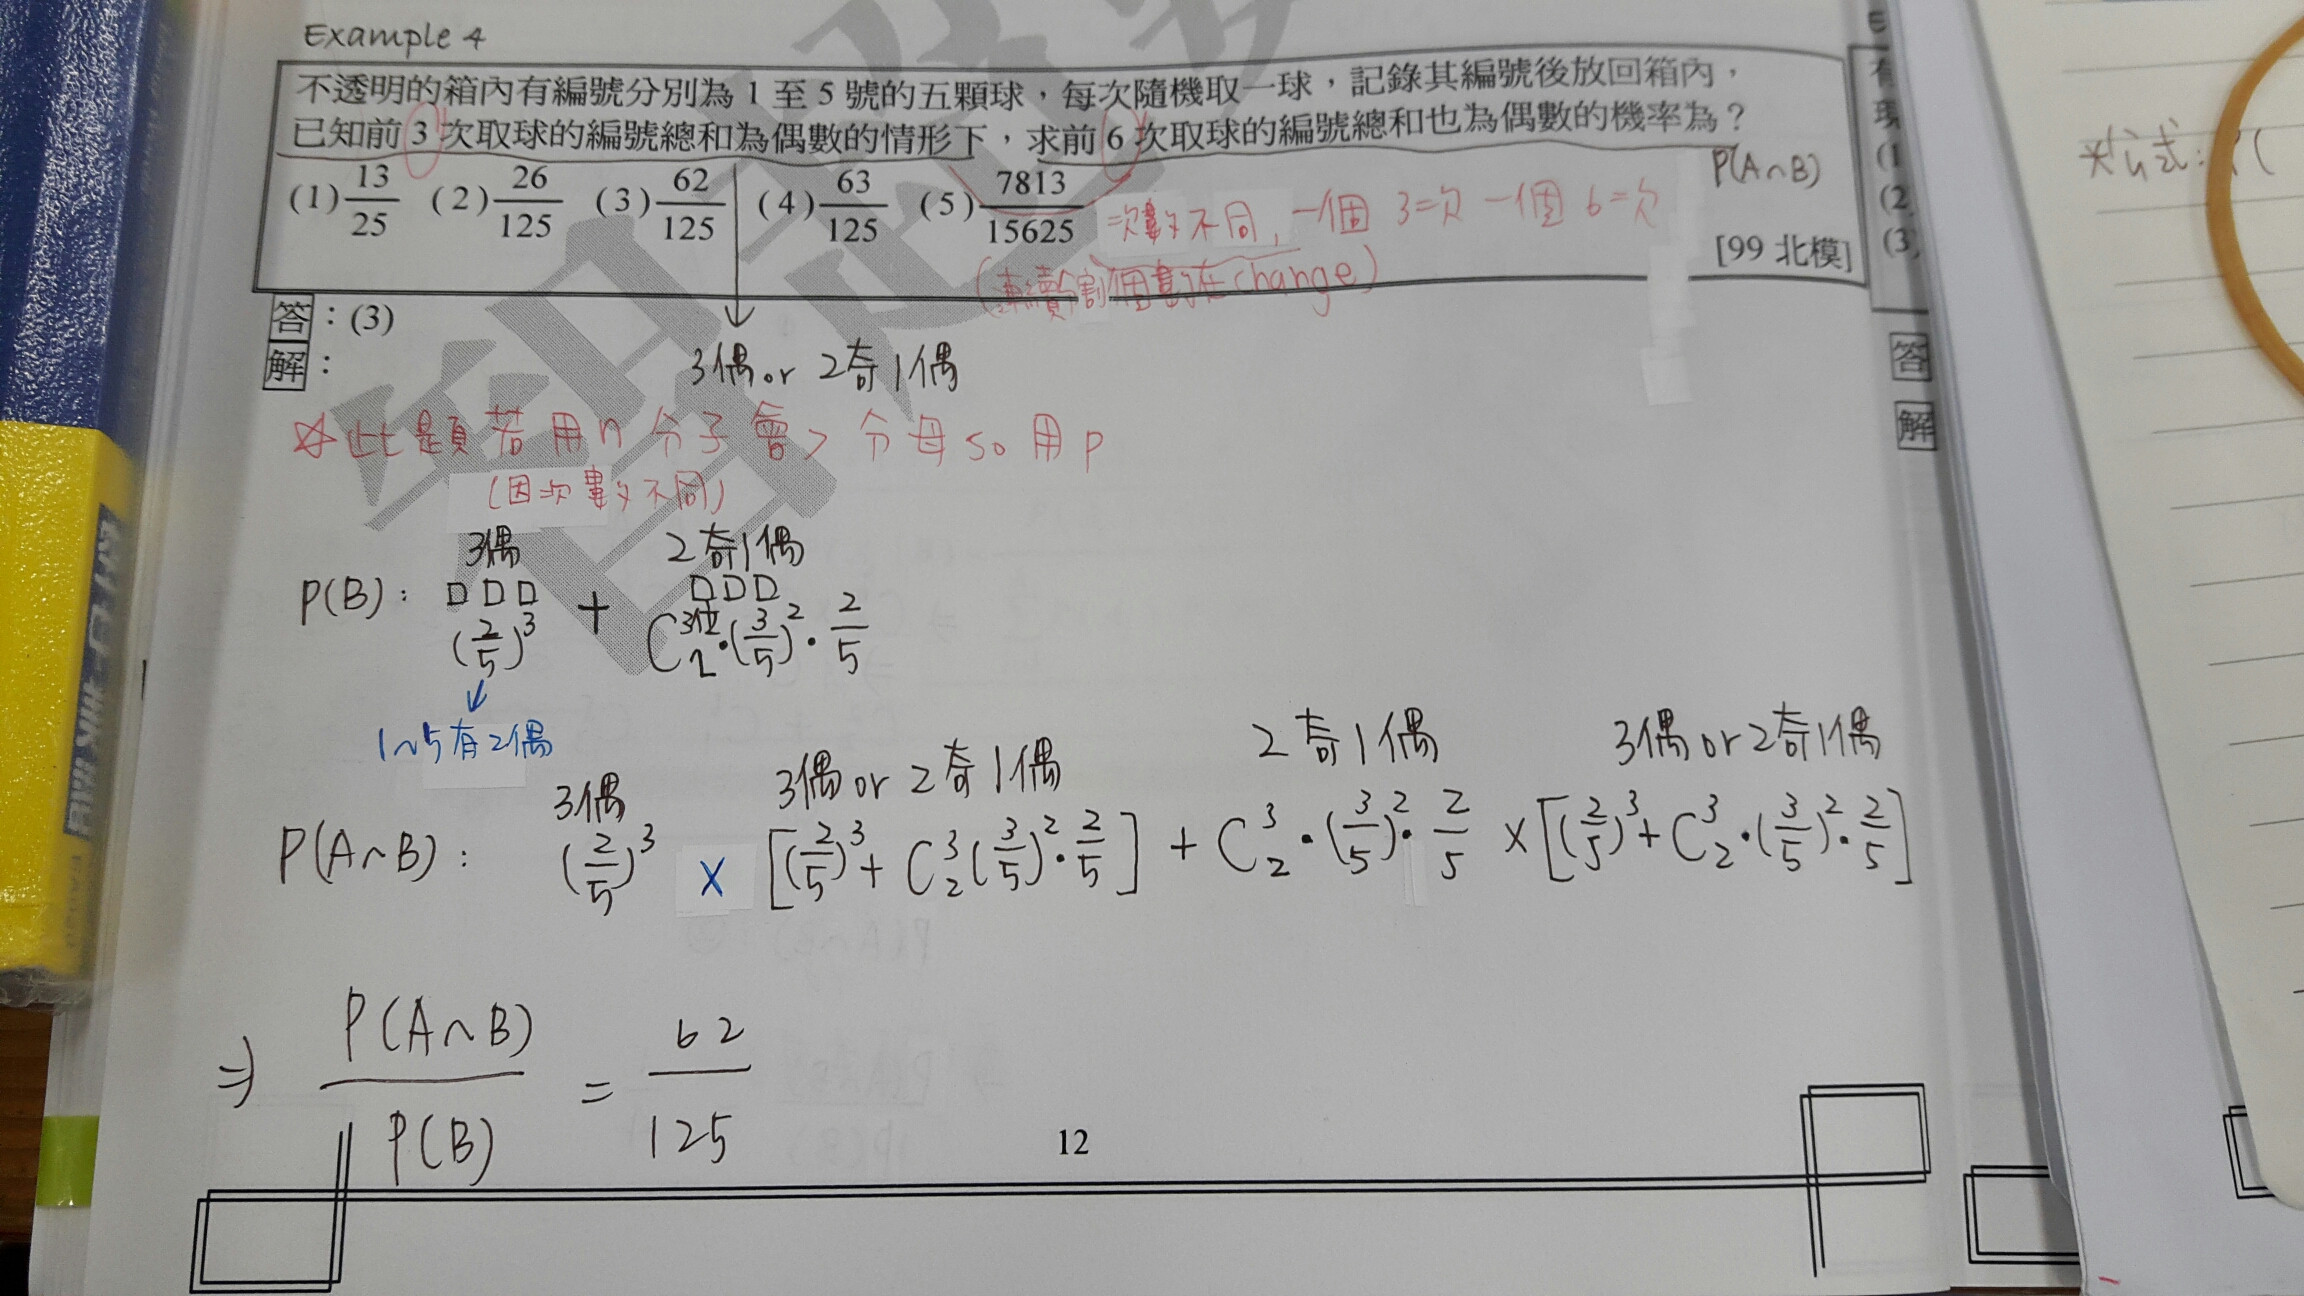 Example 4
不透明的箱內有編號分別為 1 至 5 號的五顆球，每次隨機取一球，記錄其編號後放回箱內，
已知前 3 次取球的編號總和為偶數的情形下，求前 6 次取球的編號總和也為偶數的機率為？
P(A∩B)
(1) 13/25 (2) 26/125 (3) 62/125 (4) 63/125 (5) 7813/15625
次數不同, 一個 3=次 一個 6=次
[99 北模]
(連續 割個數在change)
答：(3)
解：
3偶 or 2奇1偶
☆此題若用n 分子會> 分母 so 用p
(因次數不同)
3偶 2奇1偶
P(B): □□□ + □□□
(2/5)³ C³位₂·(3/5)²·2/5
↓
1~5有2偶
3偶 3偶 or 2奇1偶 2奇1偶 3偶 or 2奇1偶
P(A∩B): (2/5)³ × [(2/5)³+ C³₂(3/5)²·2/5] + C³₂·(3/5)²·2/5 × [(2/5)³+ C³₂·(3/5)²·2/5]
⇒ P(A∩B)/P(B) = 62/125
12
答
解
公式: